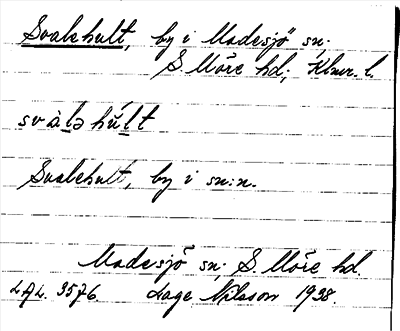 Svalehult, by i Madesjö sn;
S. Möre hd; Klmr. l.
svàləhúlt
Svalehult, by i sn:n.
Madesjö sn; S. Möre hd.
LAL. 3576. Lage Nilsson 1938.